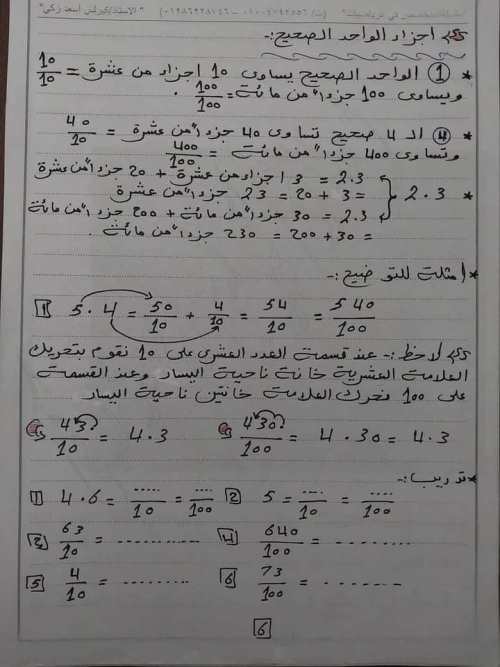 أجزاء الواحد الصحيح:-
* ① الواحد الصحيح يساوى 10 اجزاء من عشرة = 10/10
ويساوى 100 جزءاً من مائة = 100/100 .
* ④ الـ 4 صحيح تساوى 40 جزءاً من عشرة = 40/10
وتساوى 400 جزءاً من مائة = 400/100
* 2.3 { 2.3 = 3 اجزاء من عشرة + 20 جزءاً من عشرة
= 3 + 20 = 23 جزءاً من عشرة
2.3 = 30 جزءاً من مائة + 200 جزءاً من مائة
= 30 + 200 = 230 جزءاً من مائة .
* أمثلة للتوضيح:-
1 5.4 = 50/10 + 4/10 = 54/10 = 540/100
لاحظ:- عند قسمة العدد العشرى على 10 نقوم بتحريك
العلامة العشرية خانة ناحية اليسار وعند القسمة
على 100 نحرك العلامة خانتين ناحية اليسار
43/10 = 4.3 430/100 = 4.30 = 4.3
* تدريب:-
1 4.6 = ..../10 = ..../100 2 5 = ..../10 = ..../100
3 63/10 = ............ 4 640/100 = .........
5 4/10 = ......... 6 73/100 = .........
6